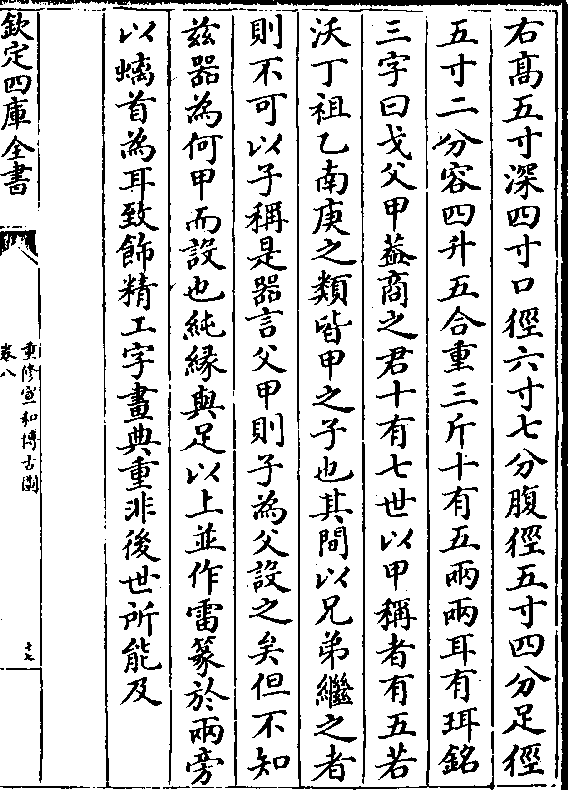 右髙五寸深四寸口徑六寸七分腹徑五寸四分足徑
五寸二分容四升五合重三斤十有五兩兩耳有珥銘
三字曰戈父甲葢商之君十有七世以甲稱者有五若
沃丁祖乙南庚之類皆甲之子也其間以兄弟繼之者
則不可以子稱是器言父甲則子為父設之矣但不知
兹器為何甲而設也純縁與足以上並作雷篆於兩旁
以螭首為耳致飾精工字畫典重非後世所能及
欽定四庫全書
重修宣和博古圖
卷八
十七